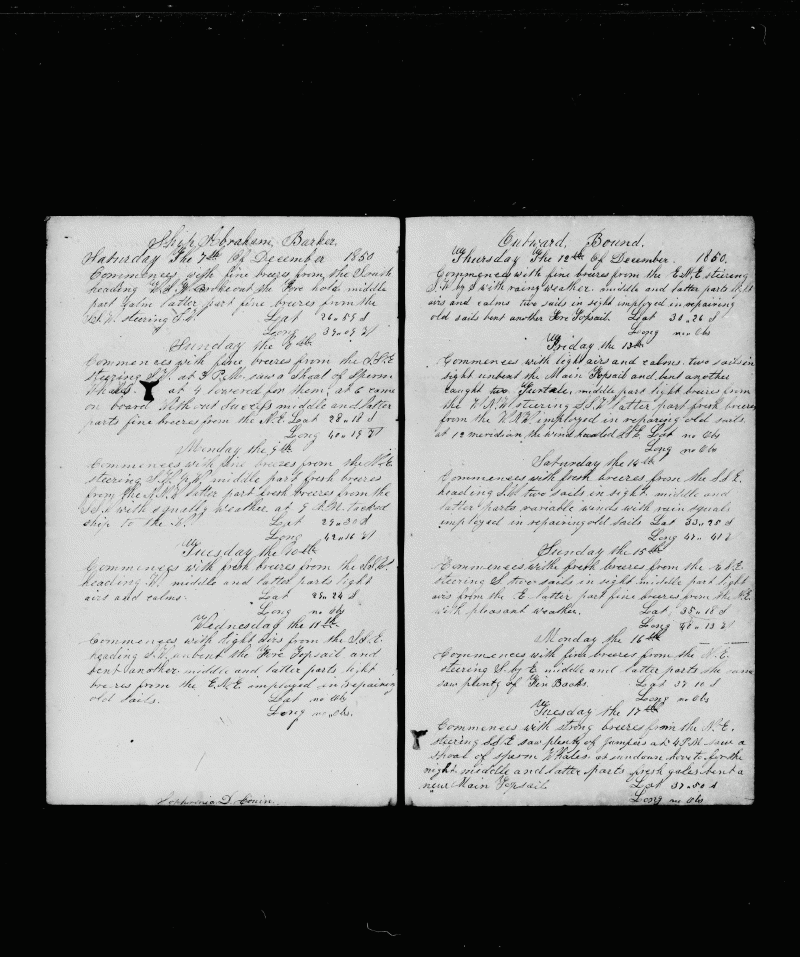 Ship Abraham Barker.
Saturday The 7th Of December 1850
Commences with fine breezes from the South
heading W.S.W. Broke out the Fore hole middle
part calm latter part fine breezes from the
steering S.W. Lat 26 " 55 S
Long 39 " 09 W
Sunday the 8th
Commences with fine breezes from the
steering S.W. at 3 P.M. saw a shoal of Sperm
Whales. at 4 lowered for them, at 6 came
on board without success middle and latter
parts fine breezes from the N.E. Lat 28 " 18 S
Long 40 " 19 W
Monday the 9th
Commences with fine breezes from the N.E.
steering middle part fresh breezes
from the latter part fresh breezes from the
with squally weather at 9 A.M. tacked
ship to the Lat 29 " 30 S
Long 42 " 16 W
Tuesday the 10th
Commences with fresh breezes from the
heading W. middle and latter parts light
airs and calms. Lat S
Long no Obs
Wednesday the 11th
Commences with light airs from the S.S.E.
heading unbent the Fore Topsail and
bent another middle and latter parts light
breezes from the E.N.E. imployed in repairing
old sails. Lat no Obs
Long no Obs.
Sophronia D.
Outward Bound.
Thursday The 12th Of December. 1850.
Commences with fine breezes from the E.N.E. steering
S.W. by S with rainy weather. middle and latter parts light
airs and calms two sails in sight imployed in repairing
old sails bent another Fore Topsail. Lat 26 S
Long no Obs
Friday the 13th
Commences with light airs and calms. two sails in
sight unbent the Main Topsail and bent another
caught two Turtale, middle part light breezes from
the steering latter part fresh breezes
from the imployed in repairing old sails.
at 12 meridian, the wind headed Lat no Obs
Long no Obs
Saturday the 14th
Commences with fresh breezes from the
heading S.W. two sails in sight. middle and
latter parts variable winds with rain squals
imployed in repairing old sails Lat 33 " 25 S
Long 47 " 41 W
Sunday the 15th
Commences with fresh breezes from the
steering S. two sails in sight. middle part light
airs from the E. latter part fine breezes from the N.E.
with pleasant weather. Lat. 35 " 18 S
Long 13 W
Monday the 16th
Commences with fine breezes from the N.E.
steering S. by E. middle and latter parts the same
saw plenty of Fin Backs. Lat 37 " 10 S
Long no Obs
Tuesday the 17th
Commences with strong breezes from the N.E.
steering S.S.E. saw plenty of Jumpers at 4 P.M. saw a
shoal of sperm Whales. at sundown hove to for the
night. middle and latter parts fresh gales bent a
new Main Topsail. Lat 37 " 50 S
Long no Obs